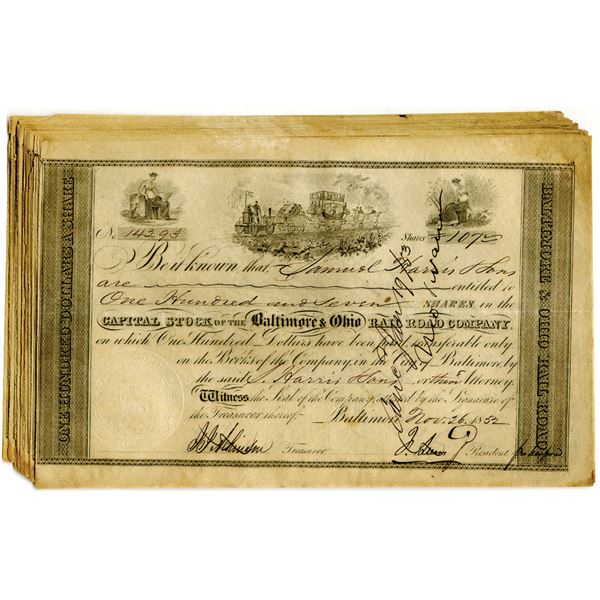 No. 14293 Shares 107
Be it known that Samuel Harris & Sons
are entitled to
One Hundred and Seven SHARES in the
CAPITAL STOCK OF THE Baltimore & Ohio RAIL ROAD COMPANY.
on which One Hundred Dollars have been paid transferable only
on the Books of the Company, in the City of Baltimore by
the said S. Harris & Sons or their Attorney.
Witness the Seal of the Company, and the Signature of
the Treasurer thereof Baltimore Nov. 26, 1852
Treasurer President
ONE HUNDRED DOLLARS A SHARE
BALTIMORE & OHIO RAIL ROAD